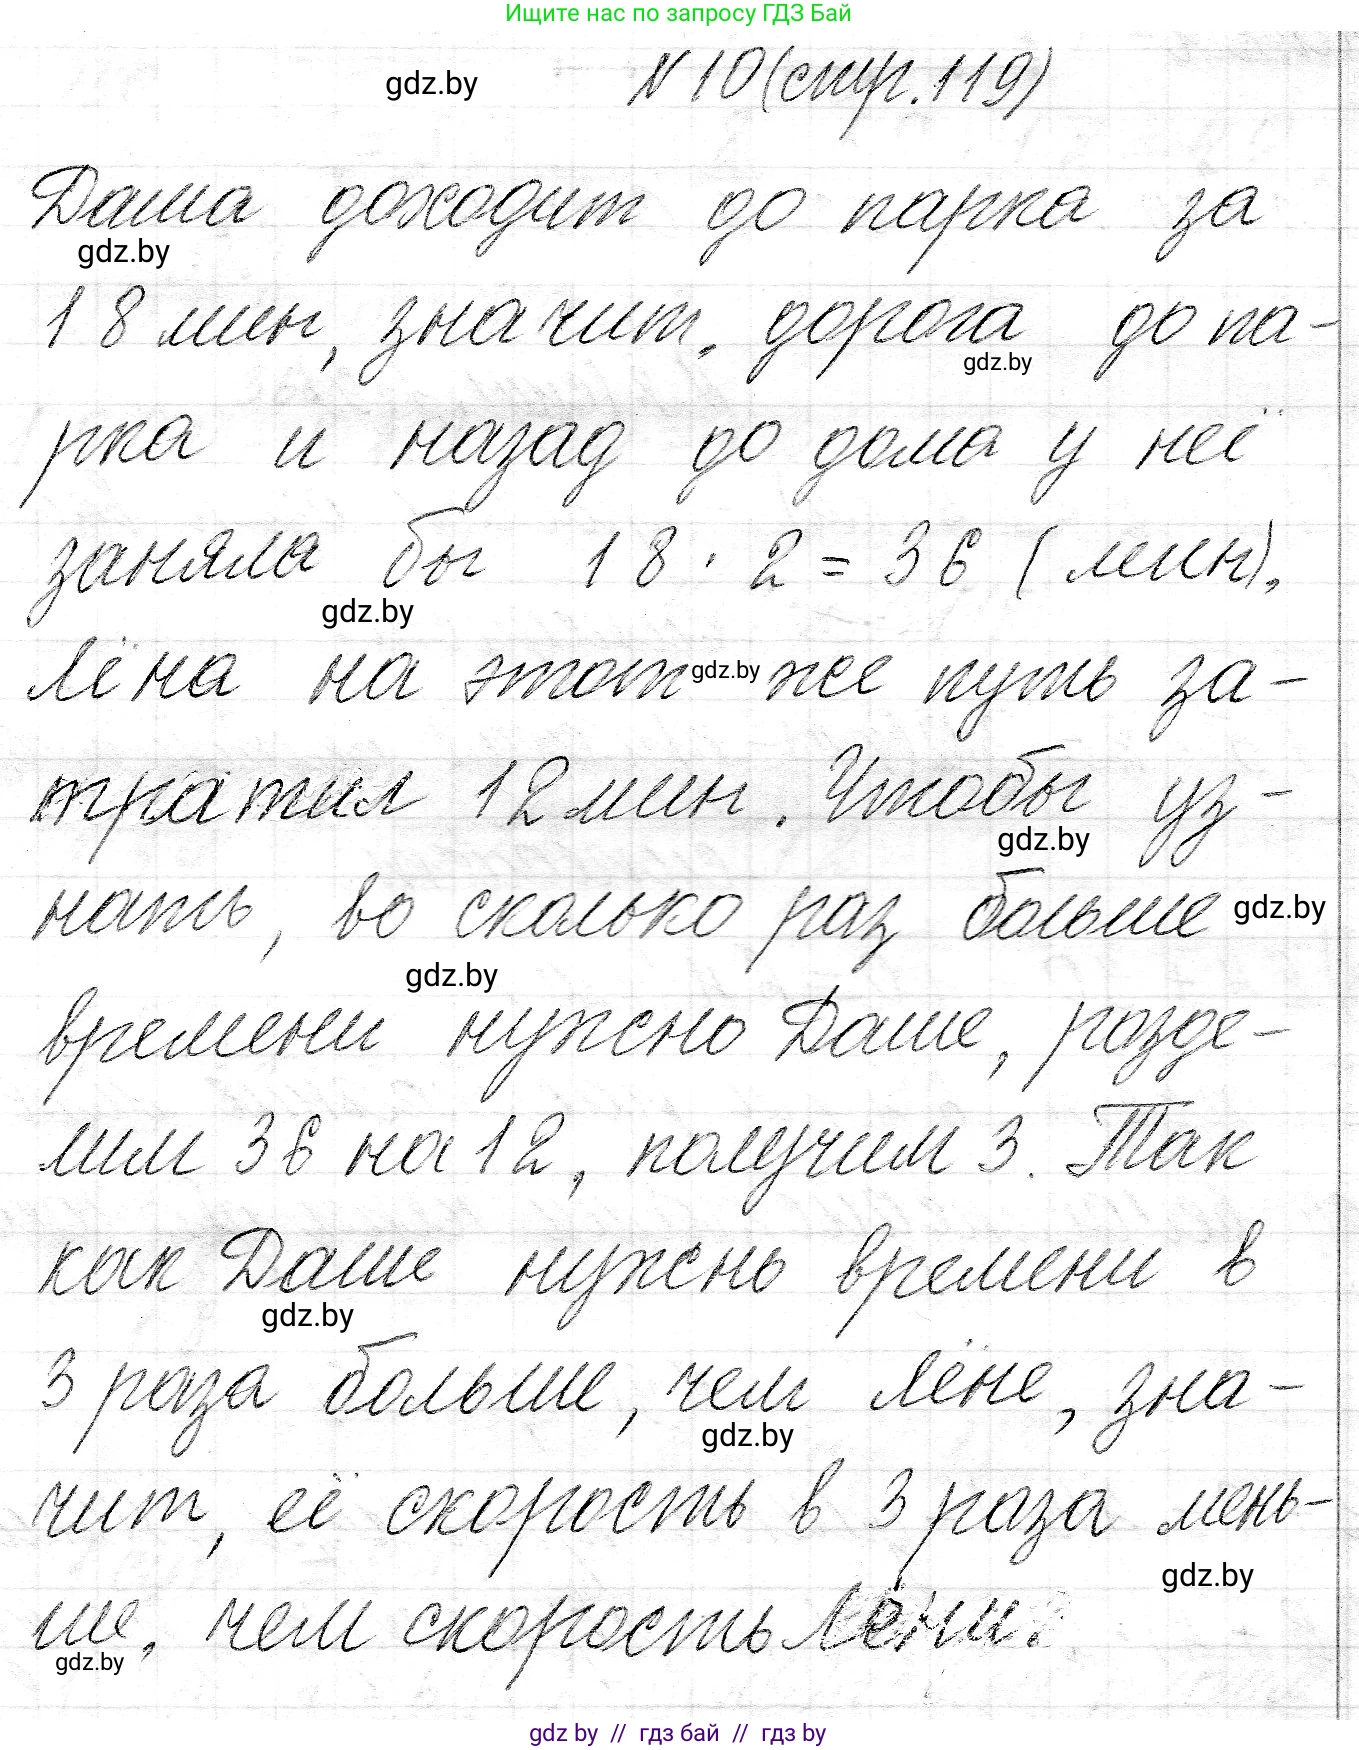 Ищите нас по запросу ГДЗ Бай
gdz.by № 10 (стр. 119)
Даша доходит до парка за
gdz.by
18 мин, значит, дорога до па-
gdz.by
рка и назад до дома у неё
заняла бы 18 · 2 = 36 (мин),
gdz.by
Лёна на этот gdz.by же путь за-
тратил 12 мин. Чтобы уз-
gdz.by
нать, во сколько раз больше gdz.by
gdz.by
времени нужно Даше, разде-
лим 36 на 12, получим 3. Так
как Даше нужнь времени в
gdz.by
3 раза больше, чем Лёне, зна-
gdz.by
чит, её скорость в 3 раза мень-
gdz.by
ше, чем скорость Лёни.
gdz.by
gdz by // гдз бай // гдз by